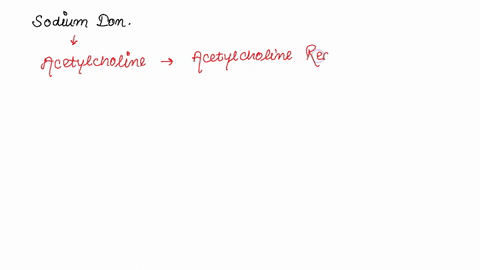 Sodium Don.
↓
Acetylcholine → Acetylcholine Rec